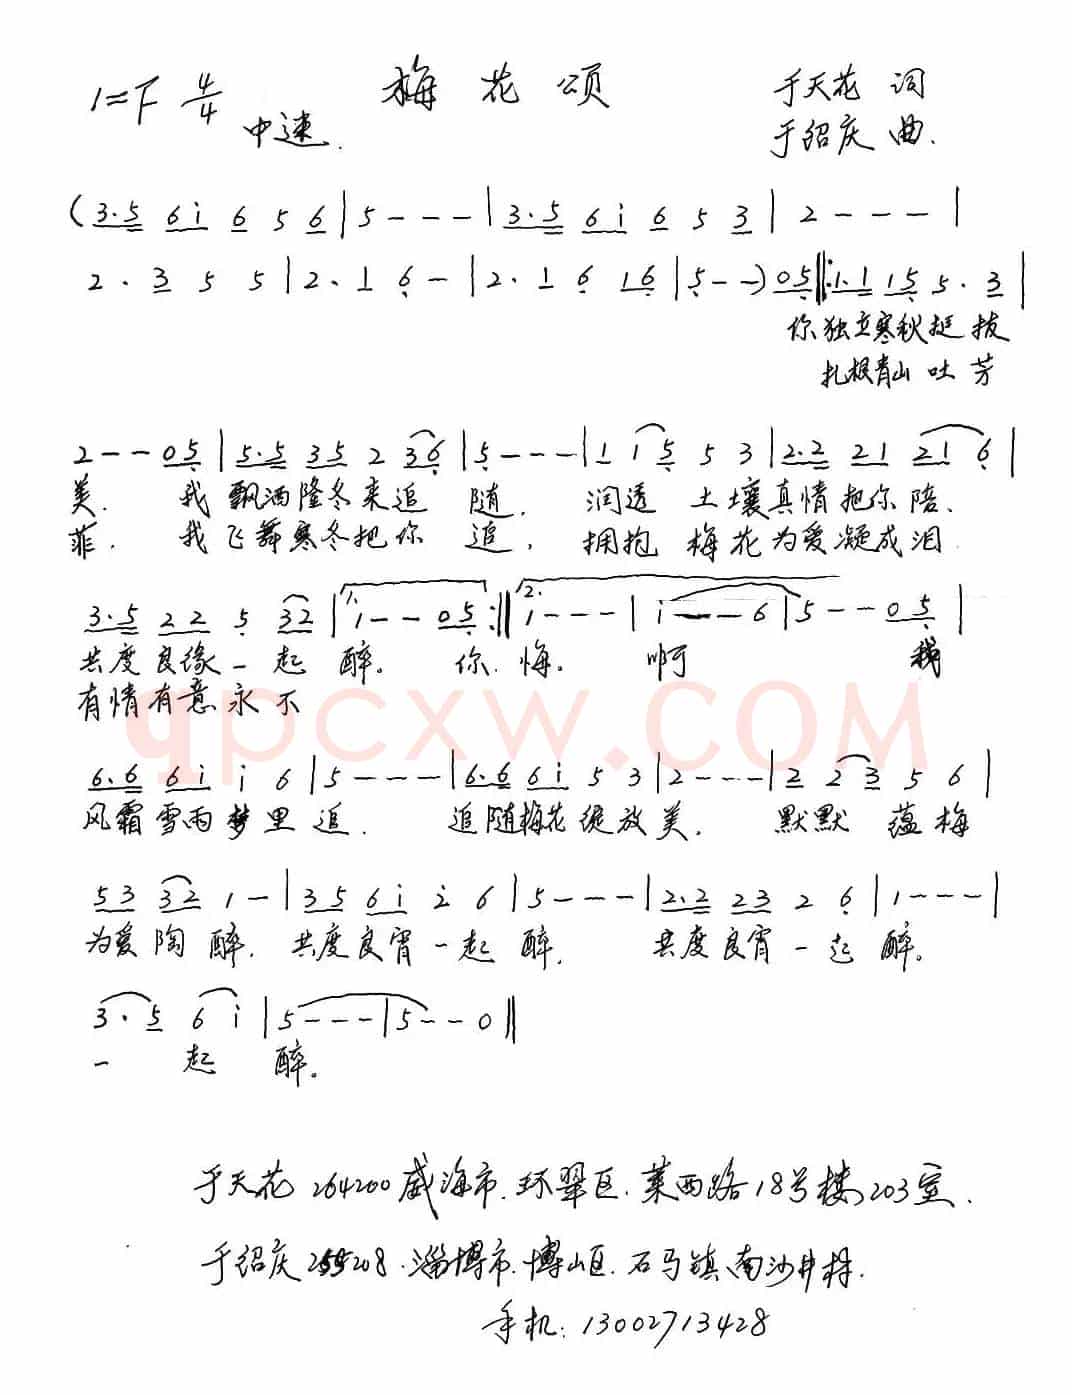 1=F 4/4 梅花颂 于天花 词
中速. 于绍庆 曲.
(3·5 6i 6 5 6 | 5 - - - | 3·5 6i 6 5 3 | 2 - - - |
2· 3 5 5 | 2· 1 6 - | 2· 1 6 16 | 5 - -) 05 ‖: 1·1 15 5· 3 |
你独立寒秋挺拔
扎根青山吐芳
2 - - 05 | 5·5 35 2 36 | 5 - - - | 1 15 5 3 | 2·2 21 21 6 |
美. 我飘洒隆冬来追随. 润透土壤真情把你陪.
菲. 我飞舞寒冬把你追, 拥抱梅花为爱凝成泪.
3·5 22 5 32 | 1. 1 - - 05 :‖ 2. 1 - - - | i - - 6 | 5 - - 05 |
共度良缘一起醉。你. 悔。啊 我
有情有意永不
qpcxw.COM
6·6 6i i 6 | 5 - - - | 6·6 6i 5 3 | 2 - - - | 2 23 5 6 |
风霜雪雨梦里追. 追随梅花绽放美. 默默蕴梅
53 32 1 - | 35 6i 2 6 | 5 - - - | 2·2 23 2 6 | 1 - - - |
为爱陶醉. 共度良宵一起醉. 共度良宵一起醉。
3· 5 6 i | 5 - - - | 5 - - 0 ‖
一起醉。
于天花 264200 威海市.环翠区.莱西路18号楼203室.
于绍庆 255208.淄博市.博山区.石马镇.南沙井村.
手机:13002713428